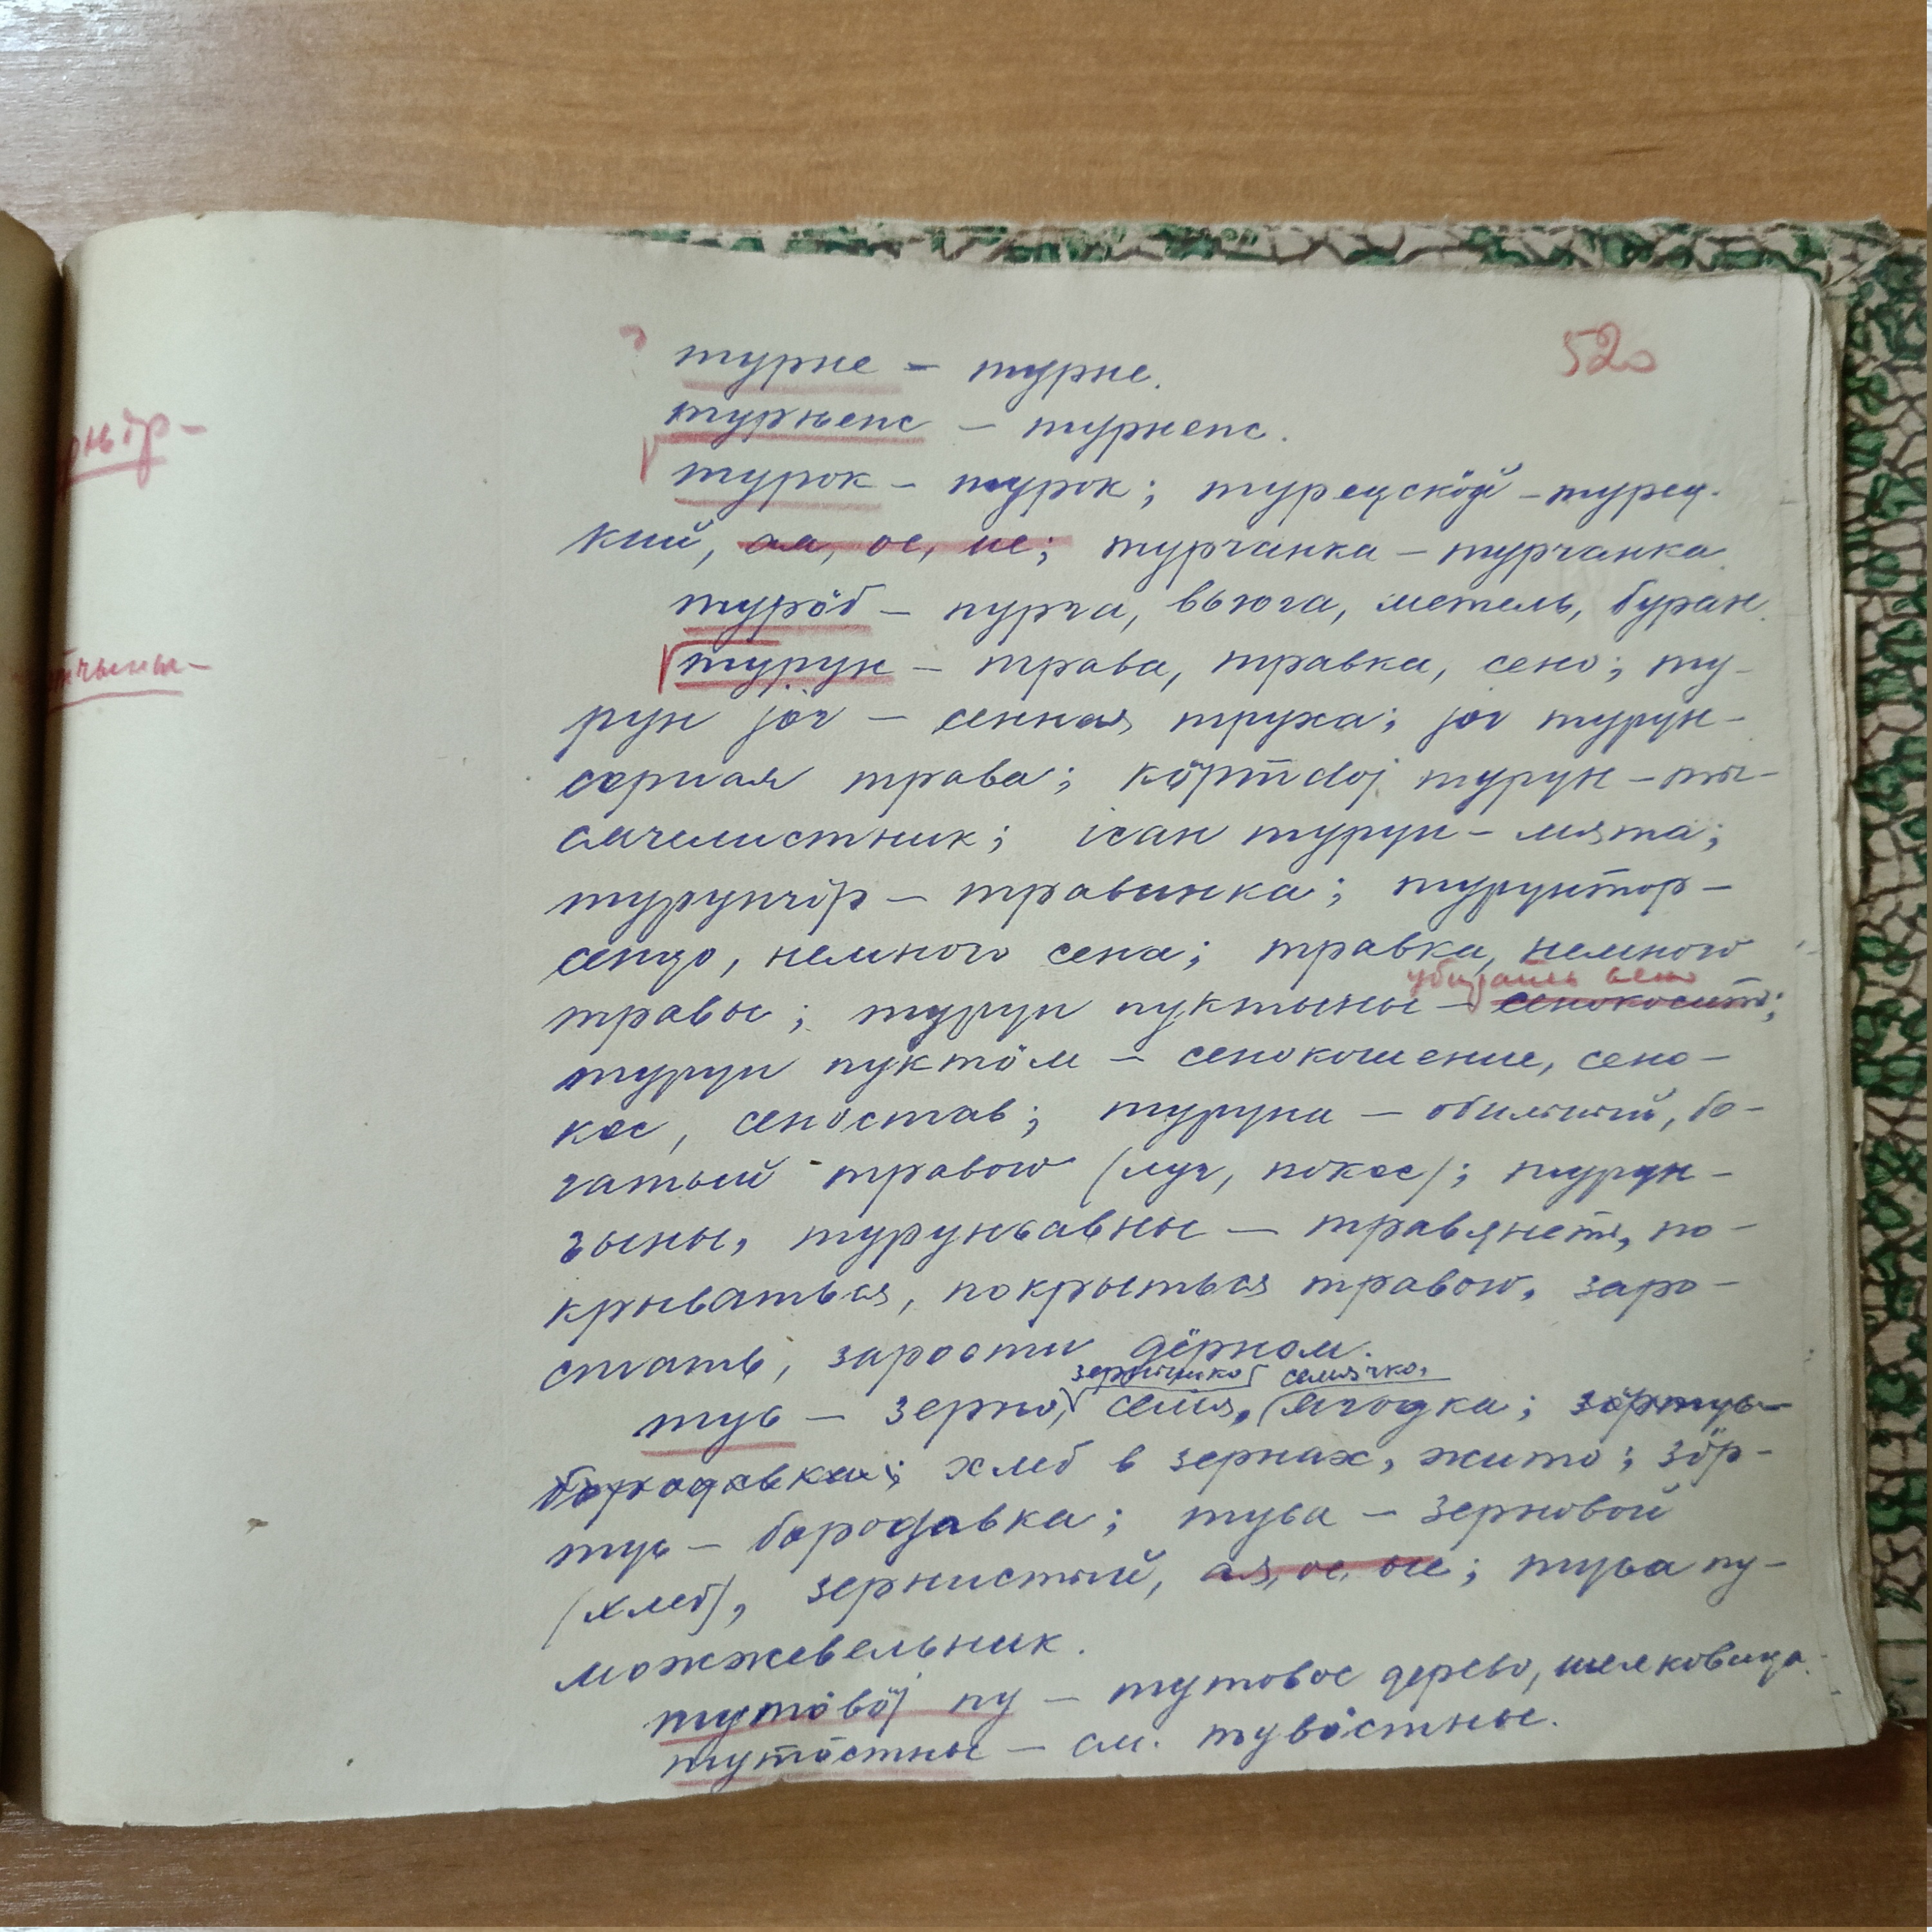 520
турне – турне.
турњепс – турнепс.
турок – турок; турецскӧй – турец-
кий, ая, ое, ие; турчанка – турчанка.
турӧб – пурга, вьюга, метель, буран.
турун – трава, травка, сено; ту-
рун јог – сенная труха; јог турун –
сорная трава; турун – ты-
сячелистник; ісан турун – мята;
турунчӧр – травинка; турунтор –
сенцо, немного сена; травка, немного
убирать сено
травы; турун пуктыны – сенокосить;
турун пуктӧм – сенокошение, сено-
кос, сеностав; туруна – обильный, бо-
гатый травою (луг, покос); турун-
зыны, турунԍавны – травянеть, по-
крываться, покрыться травою, заро-
стать, зарости дёрном.
зернышко семячко,
туԍ – зерно, семя, ягодка; зӧртуԍ –
бородавка; хлеб в зернах, жито; зӧр-
туԍ – бородавка; туԍа – зерновой
(хлеб), зернистый, ая, ое, ые; туԍа пу –
можжевельник.
тутӧвӧј пу – тутовое дерево, шелковица.
тутӧстны – см. тувӧстны.